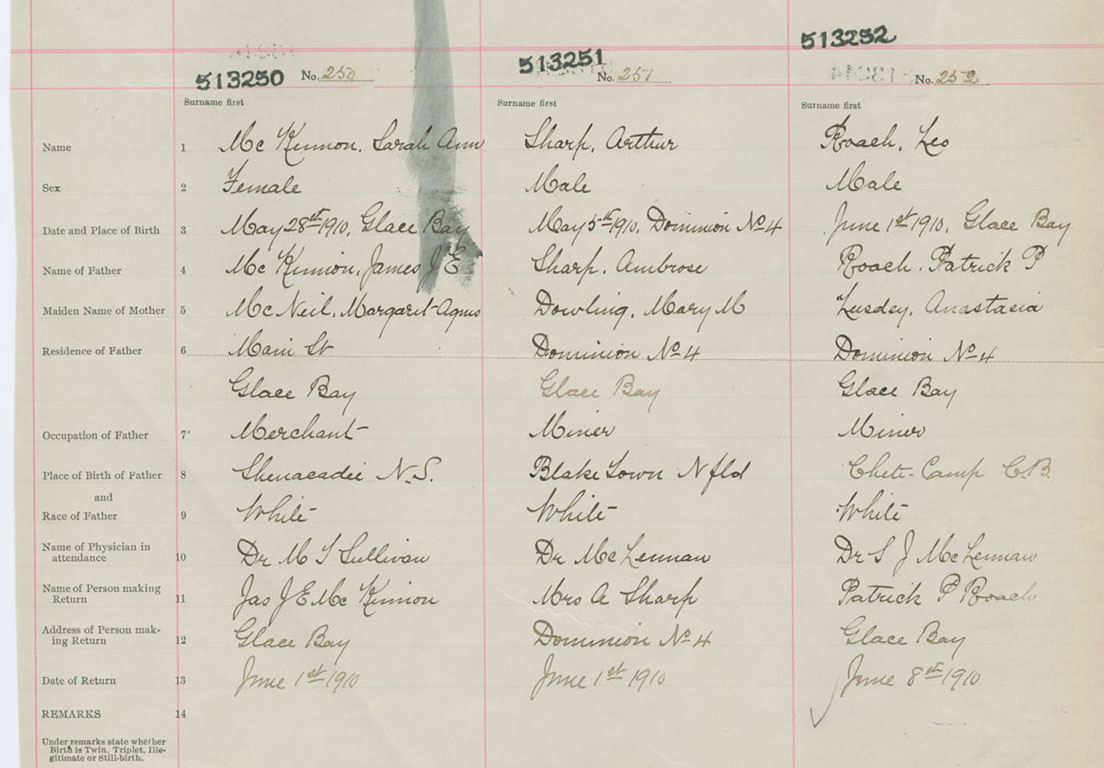 513250 No. 250
513251 No. 251
513252 No. 252
Surname first Surname first Surname first
Name 1 Mc Kinnon, Sarah Ann Sharp, Arthur Roach, Leo
Sex 2 Female Male Male
Date and Place of Birth 3 May 28st 1910, Glace Bay May 5th 1910, Dominion No 4 June 1st 1910, Glace Bay
Name of Father 4 Mc Kinnon, James J E Sharp, Ambrose Roach, Patrick P
Maiden Name of Mother 5 Mc Neil, Margaret Agnes Dowling, Mary M Anastasia
Residence of Father 6 Main St Dominion No 4 Dominion No 4
Glace Bay Glace Bay Glace Bay
Occupation of Father 7 Merchant Miner Miner
Place of Birth of Father 8 Shenacadie N.S. Blake Town Nfld Chete-Camp C.B.
and
Race of Father 9 White White White
Name of Physician in
attendance 10 Dr M T Sullivan Dr McLennan Dr S J McLennan
Name of Person making
Return 11 Jas J E Mc Kinnon Mrs A Sharp Patrick P Roach
Address of Person mak-
ing Return 12 Glace Bay Dominion No 4 Glace Bay
Date of Return 13 June 1st 1910 June 1st 1910 June 8th 1910
REMARKS 14
Under remarks state whether
Birth is Twin, Triplet, Ille-
gitimate or Still-birth.